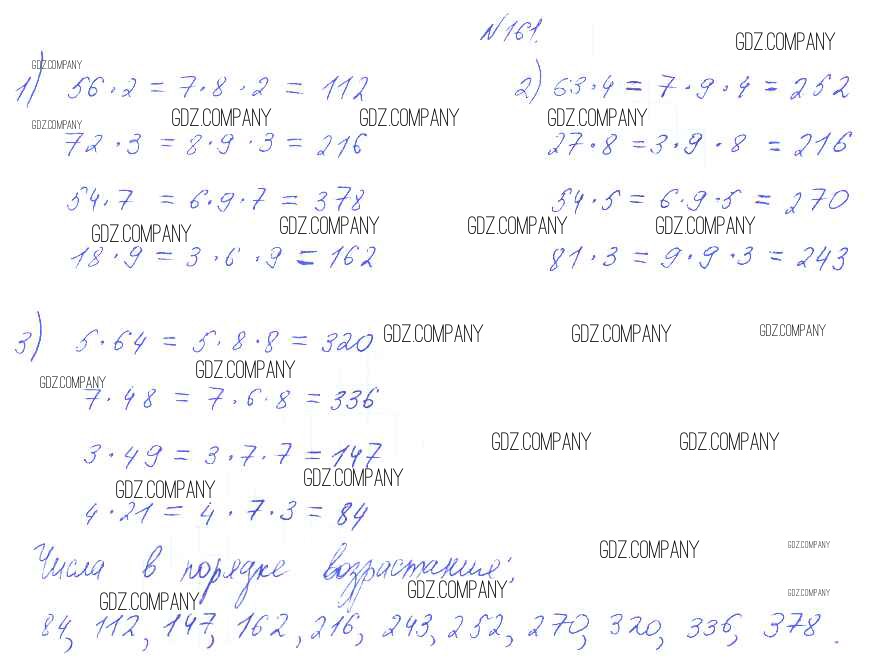 N161.
GDZ.COMPANY
GDZ.COMPANY
1) 56·2 = 7·8·2 = 112
2) 63·4 = 7·9·4 = 252
GDZ.COMPANY GDZ.COMPANY GDZ.COMPANY GDZ.COMPANY
72·3 = 8·9·3 = 216
27·8 = 3·9·8 = 216
54·7 = 6·9·7 = 378
54·5 = 6·9·5 = 270
GDZ.COMPANY GDZ.COMPANY GDZ.COMPANY GDZ.COMPANY
18·9 = 3·6·9 = 162
81·3 = 9·9·3 = 243
3) 5·64 = 5·8·8 = 320
GDZ.COMPANY GDZ.COMPANY GDZ.COMPANY
GDZ.COMPANY GDZ.COMPANY
7·48 = 7·6·8 = 336
GDZ.COMPANY GDZ.COMPANY
3·49 = 3·7·7 = 147
GDZ.COMPANY GDZ.COMPANY
4·21 = 4·7·3 = 84
GDZ.COMPANY GDZ.COMPANY
Числа в порядке возрастания:
GDZ.COMPANY GDZ.COMPANY GDZ.COMPANY
84, 112, 147, 162, 216, 243, 252, 270, 320, 336, 378.